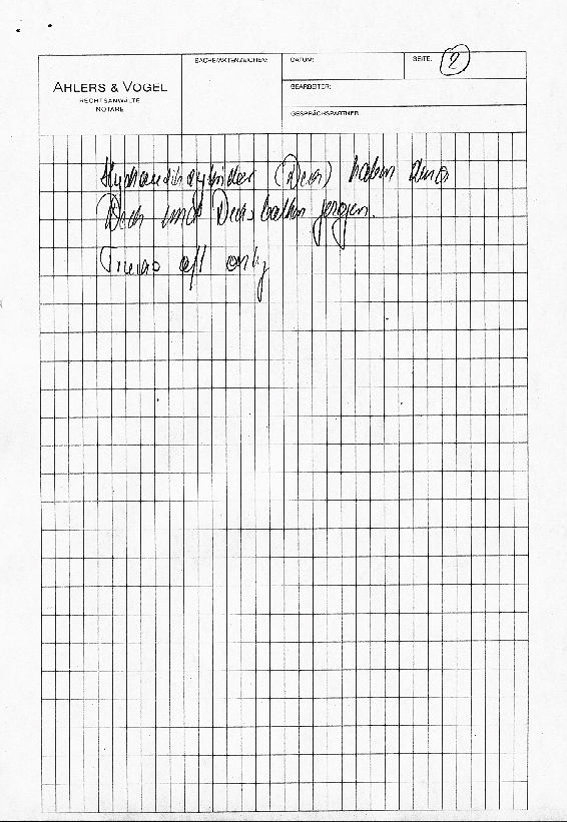 AHLERS & VOGEL
RECHTSANWÄLTE
NOTARE
SACHE/AKTENZEICHEN:
DATUM:
SEITE: 2
BEARBEITER:
GESPRÄCHSPARTNER
Hydraulikzylinder (Deck) haben
Deck und Decksbalken gezogen.
off only